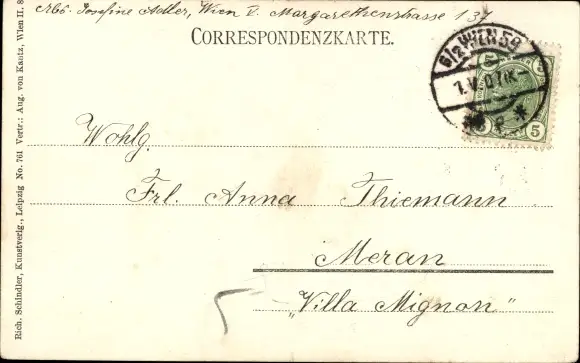 Abs. Josefine Adler, Wien V. Margarethenstrasse 137
CORRESPONDENZKARTE.
WIEN 59
5 5
5 5
Wohlg.
Frl. Anna Thiemann
Meran
„Villa Mignon"
5
Rich. Schindler, Kunstverlg., Leipzig No. 761 Vertr.: Aug. von Kautz, Wien II. 8